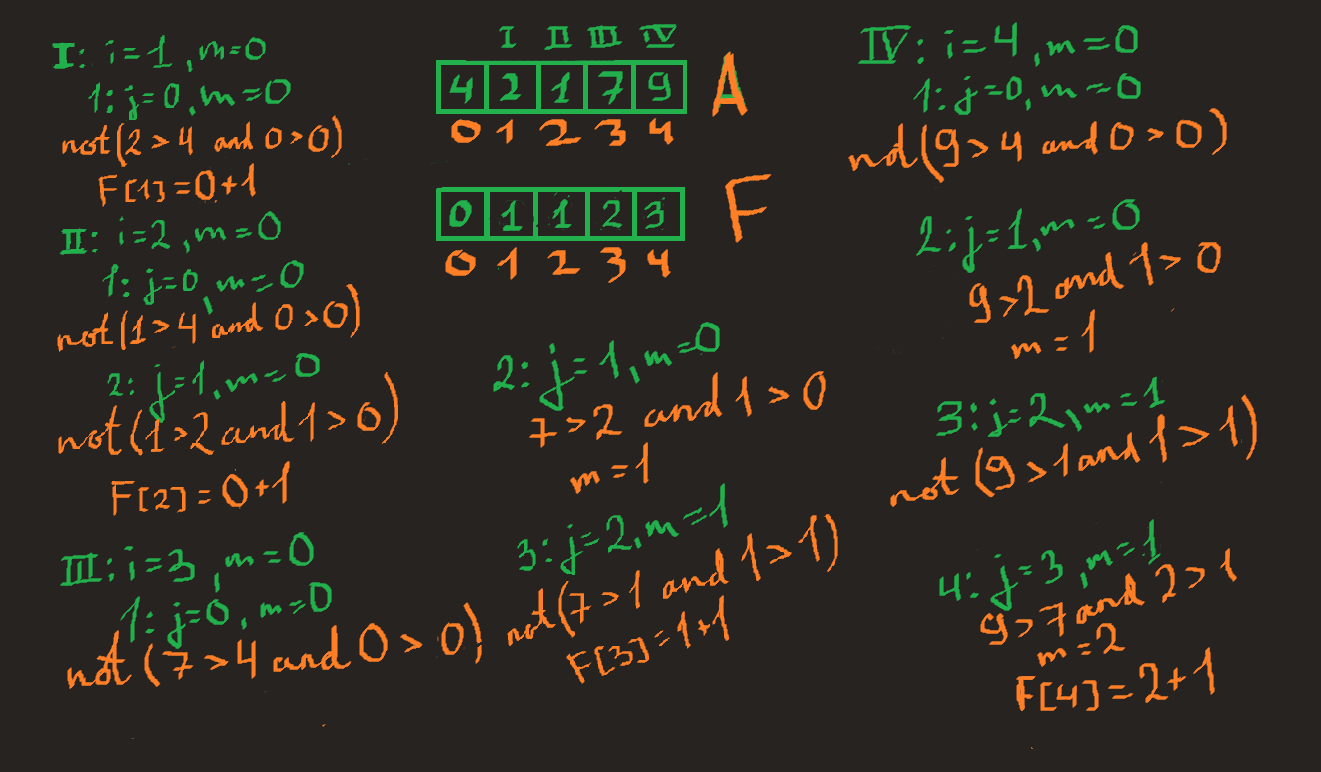 I: i=1, m=0
1: j=0, m=0
not(2>4 and 0>0)
F[1]=0+1
II: i=2, m=0
1: j=0, m=0
not(1>4 and 0>0)
2: j=1, m=0
not(1>2 and 1>0)
F[2]=0+1
III: i=3, m=0
1: j=0, m=0
not(7>4 and 0>0);
I II III IV
4 2 1 7 9 A
0 1 2 3 4
0 1 1 2 3 F
0 1 2 3 4
2: j=1, m=0
7>2 and 1>0
m=1
3: j=2, m=1
not(7>1 and 1>1)
F[3]=1+1
IV: i=4, m=0
1: j=0, m=0
not(9>4 and 0>0)
2: j=1, m=0
9>2 and 1>0
m=1
3: j=2, m=1
not(9>1 and 1>1)
4: j=3, m=1
9>7 and 2>1
m=2
F[4]=2+1